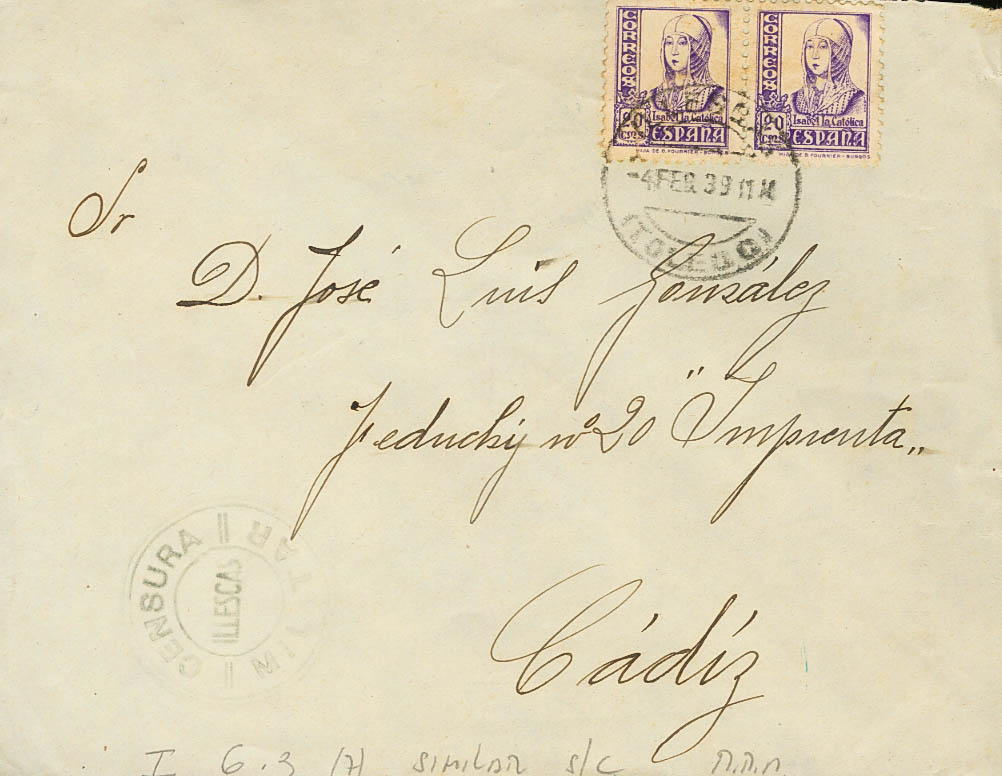 CORREOS
20 CMS
Isabel la Católica
ESPAÑA
HIJA DE B. FOURNIER - BURGOS
CORREOS
20 CMS
Isabel la Católica
ESPAÑA
HIJA DE B. FOURNIER - BURGOS
-4 FEB. 39 11 M
(TOLEDO)
Sr
D. José Luis González
Feduchy nº 20 "Imprenta"
Cádiz
CENSURA MILITAR
ILLESCAS
I 6.3 (7) SIMILAR S/C R.R.R.